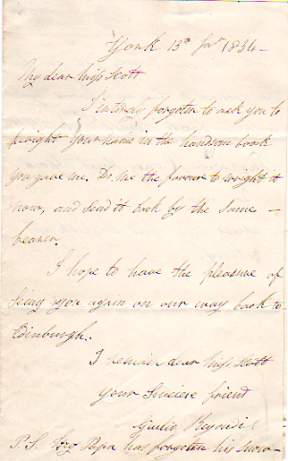 York 13th Jany 1834 –
My dear Miss Scott
I entirely forgotten to ask you to
wright your name in the handsom book
you gave me. Do me the favoure to wright it
now, and send it back by the same –
bearer.
I hope to have the pleasure of
seing you again on our way back to
Edinburgh.
I remain dear Miss Scott
your sincere friend
Giulio Regondi
P.S. My Papa has forgotten his snow–